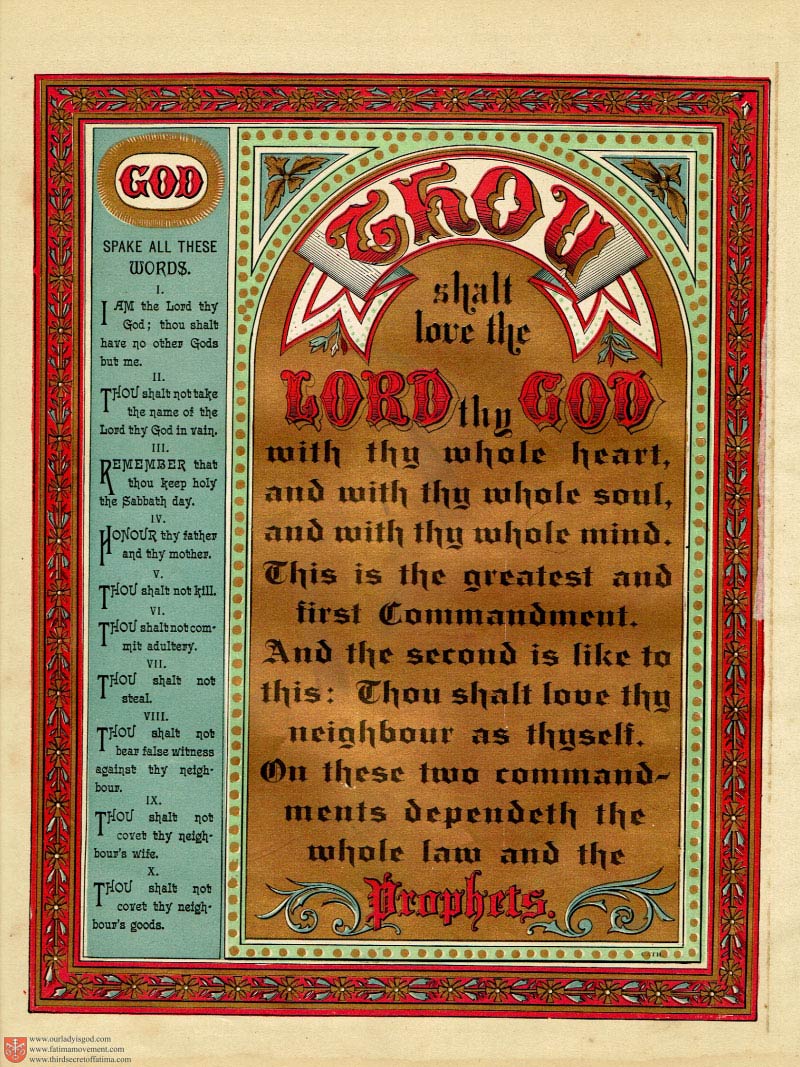 GOD
SPAKE ALL THESE
WORDS.
I.
I AM the Lord thy
God; thou shalt
have no other Gods
but me.
II.
THOU shalt not take
the name of the
Lord thy God in vain.
III.
REMEMBER that
thou keep holy
the Sabbath day.
IV.
HONOUR thy father
and thy mother.
V.
THOU shalt not kill.
VI.
THOU shalt not com-
mit adultery.
VII.
THOU shalt not
steal.
VIII.
THOU shalt not
bear false witness
against thy neigh-
bour.
IX.
THOU shalt not
covet thy neigh-
bour's wife.
X.
THOU shalt not
covet thy neigh-
bour's goods.
Thou
shalt
love the
LORD thy GOD
with thy whole heart,
and with thy whole soul,
and with thy whole mind.
This is the greatest and
first Commandment.
And the second is like to
this: Thou shalt love thy
neighbour as thyself.
On these two command-
ments dependeth the
whole law and the
Prophets.
www.ourladyisgod.com
www.fatimamovement.com
www.thirdsecretoffatima.com